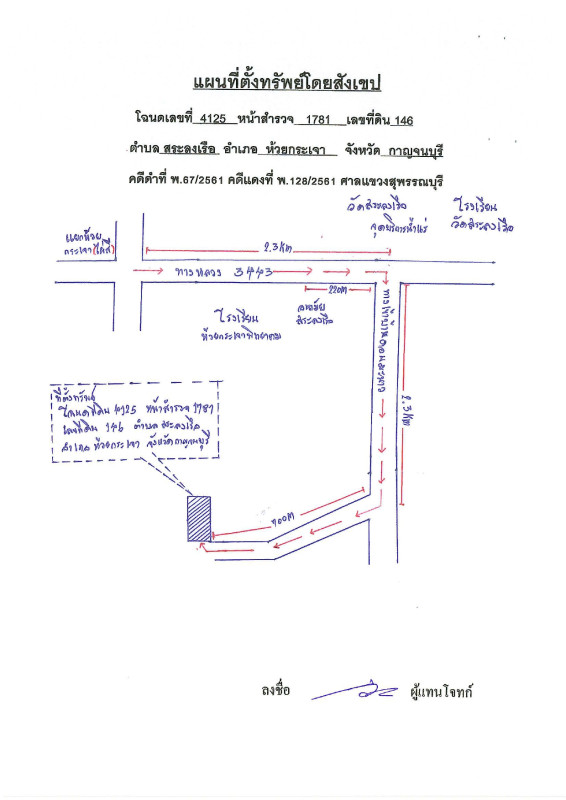 แผนที่ตั้งทรัพย์โดยสังเขป
โฉนดเลขที่ 4125 หน้าสำรวจ 1781 เลขที่ดิน 146
ตำบล สระลงเรือ อำเภอ ห้วยกระเจา จังหวัด กาญจนบุรี
คดีดำที่ พ.67/2561 คดีแดงที่ พ.128/2561 ศาลแขวงสุพรรณบุรี
วัดสระลงเรือ
จุดบริการน้ำแร่
โรงเรียน
วัดสระลงเรือ
แยกห้วย
กระเจา
2.3 KM
ทางหลวง 3443
220M
โรงเรียน
ห้วยกระเจาพิทยาคม
สระลงเรือ
2.3 KM
ที่ตั้งทรัพย์
โฉนดที่ดิน 4125 หน้าสำรวจ 1781
เลขที่ดิน 146 ตำบล สระลงเรือ
อำเภอ ห้วยกระเจา จังหวัดกาญจนบุรี
700M
ลงชื่อ ผู้แทนโจทก์